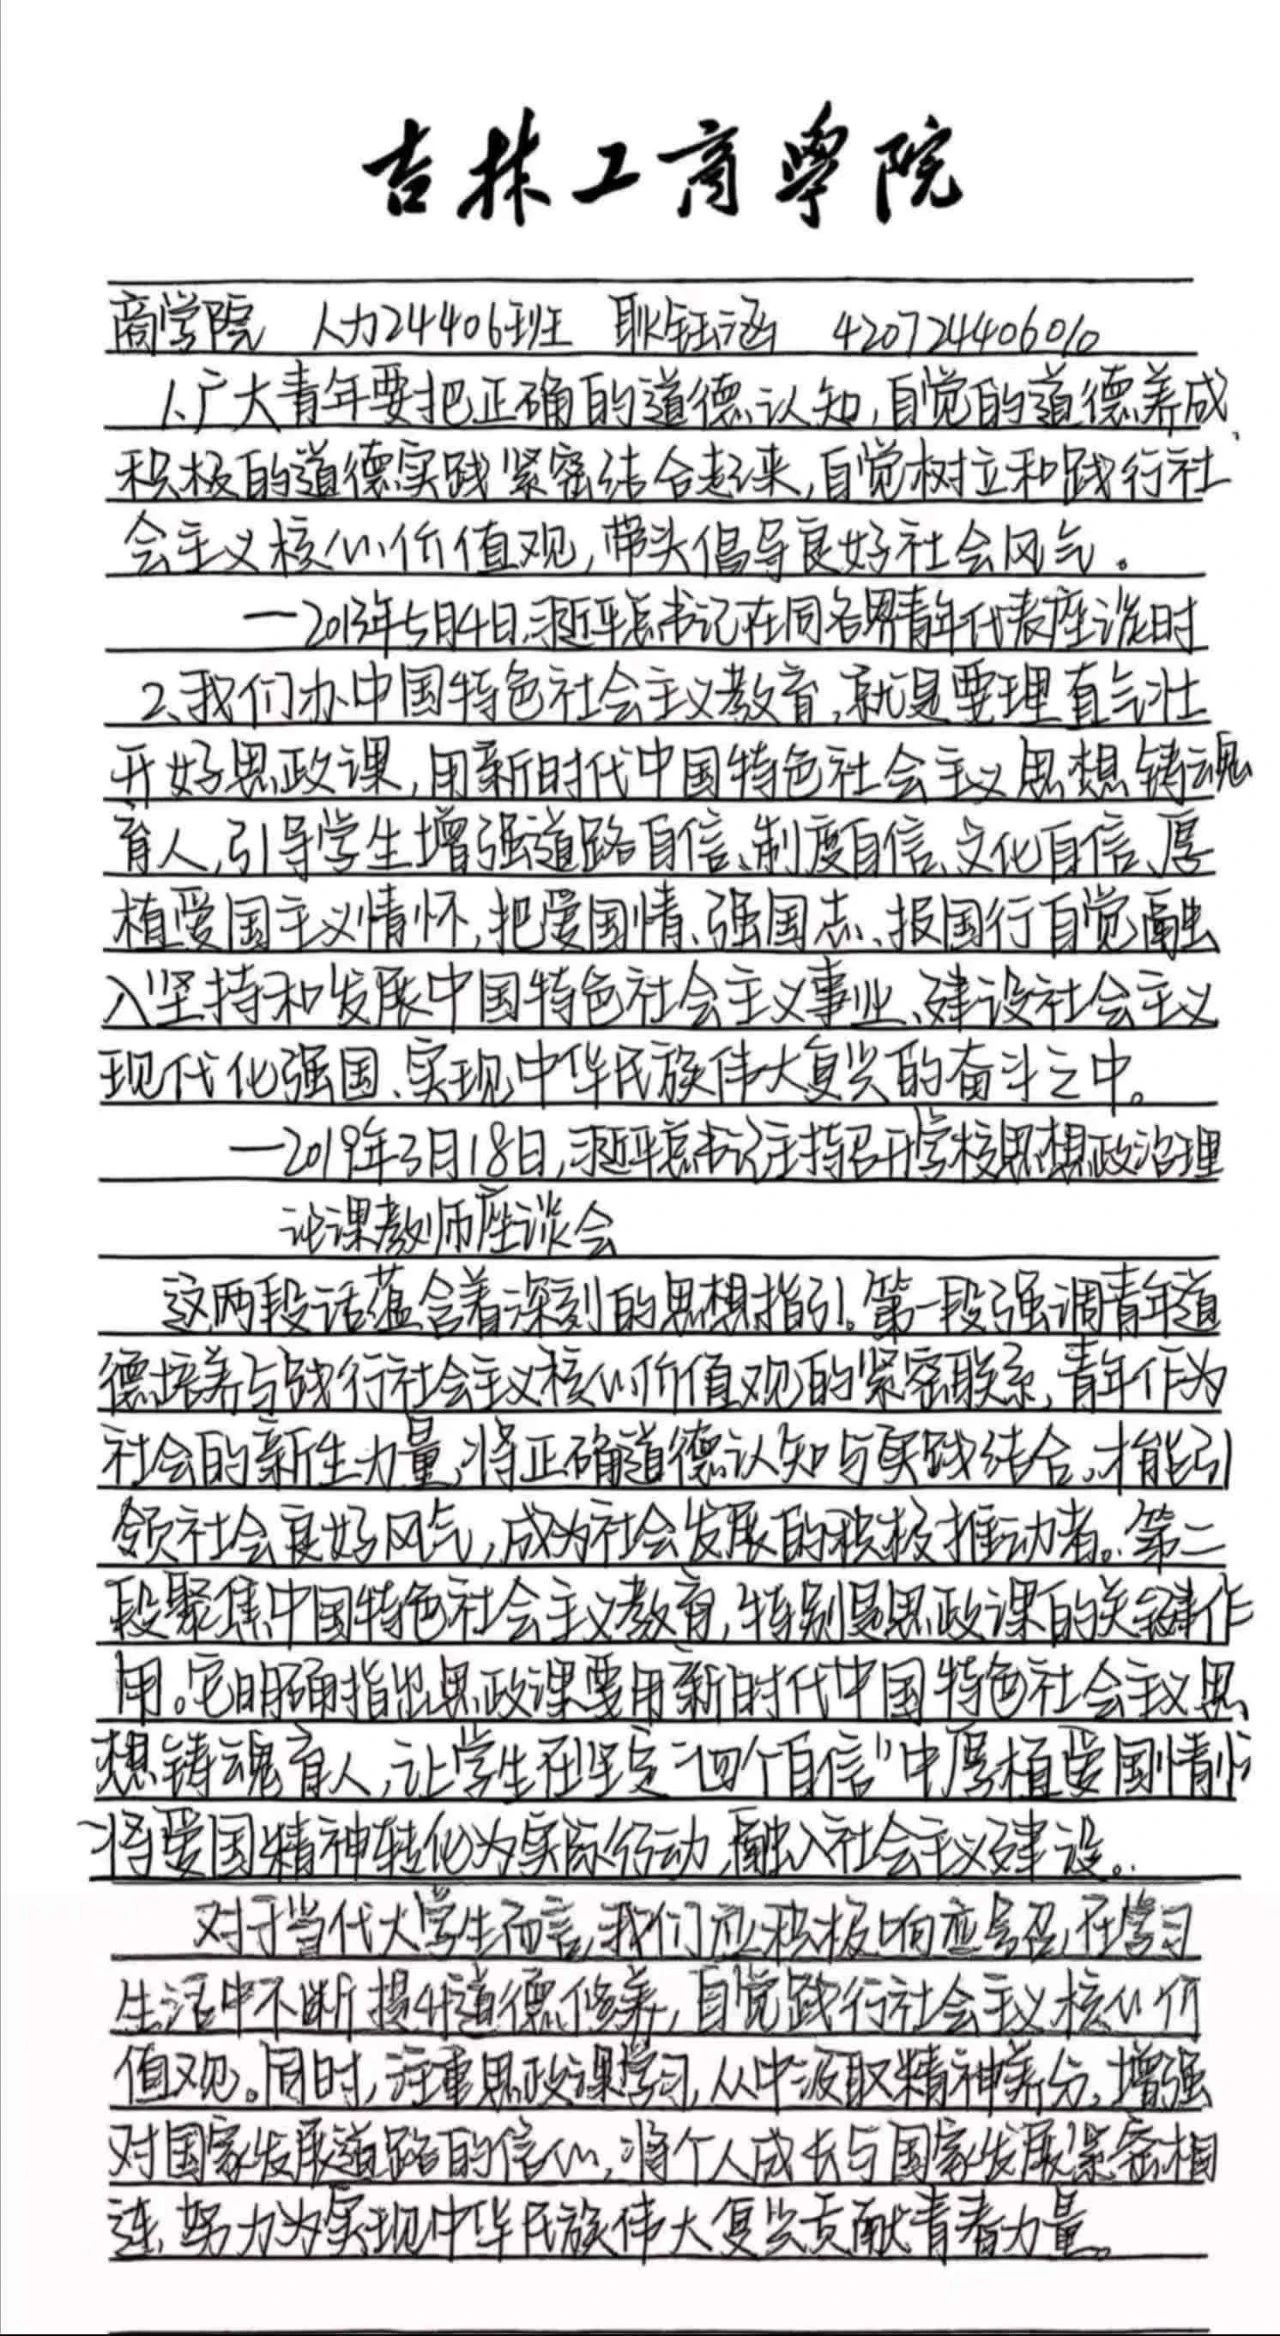 吉林工商學院
商学院 人力24406班 耿钰涵 42072440601o
1、广大青年要把正确的道德认知,自觉的道德养成、
积极的道德实践紧密结合起来,自觉树立和践行社
会主义核心价值观,带头倡导良好社会风气。
—2013年5月4日,习近平总书记在同各界青年代表座谈时
2、我们办中国特色社会主义教育,就是要理直气壮
开好思政课,用新时代中国特色社会主义思想铸魂
育人,引导学生增强道路自信、制度自信、文化自信、厚
植爱国主义情怀,把爱国情、强国志、报国行自觉融
入坚持和发展中国特色社会主义事业、建设社会主义
现代化强国、实现中华民族伟大复兴的奋斗之中。
—2019年3月18日,习近平总书记主持召开学校思想政治理
论课教师座谈会
这两段话蕴含着深刻的思想指引。第一段强调青年道
德培养与践行社会主义核心价值观的紧密联系,青年作为
社会的新生力量,将正确道德认知与实践结合,才能引
领社会良好风气,成为社会发展的积极推动者。第二
段聚焦中国特色社会主义教育,特别是思政课的关键作
用。它明确指出思政课要用新时代中国特色社会主义思
想铸魂育人,让学生在坚定“四个自信”中厚植爱国情怀
将爱国精神转化为实际行动,融入社会主义建设。
对于当代大学生而言,我们应积极响应号召,在学习
生活中不断提升道德修养,自觉践行社会主义核心价
值观。同时,注重思政课学习,从中汲取精神养分,增强
对国家发展道路的信心,将个人成长与国家发展紧密相
连,努力为实现中华民族伟大复兴贡献青春力量。